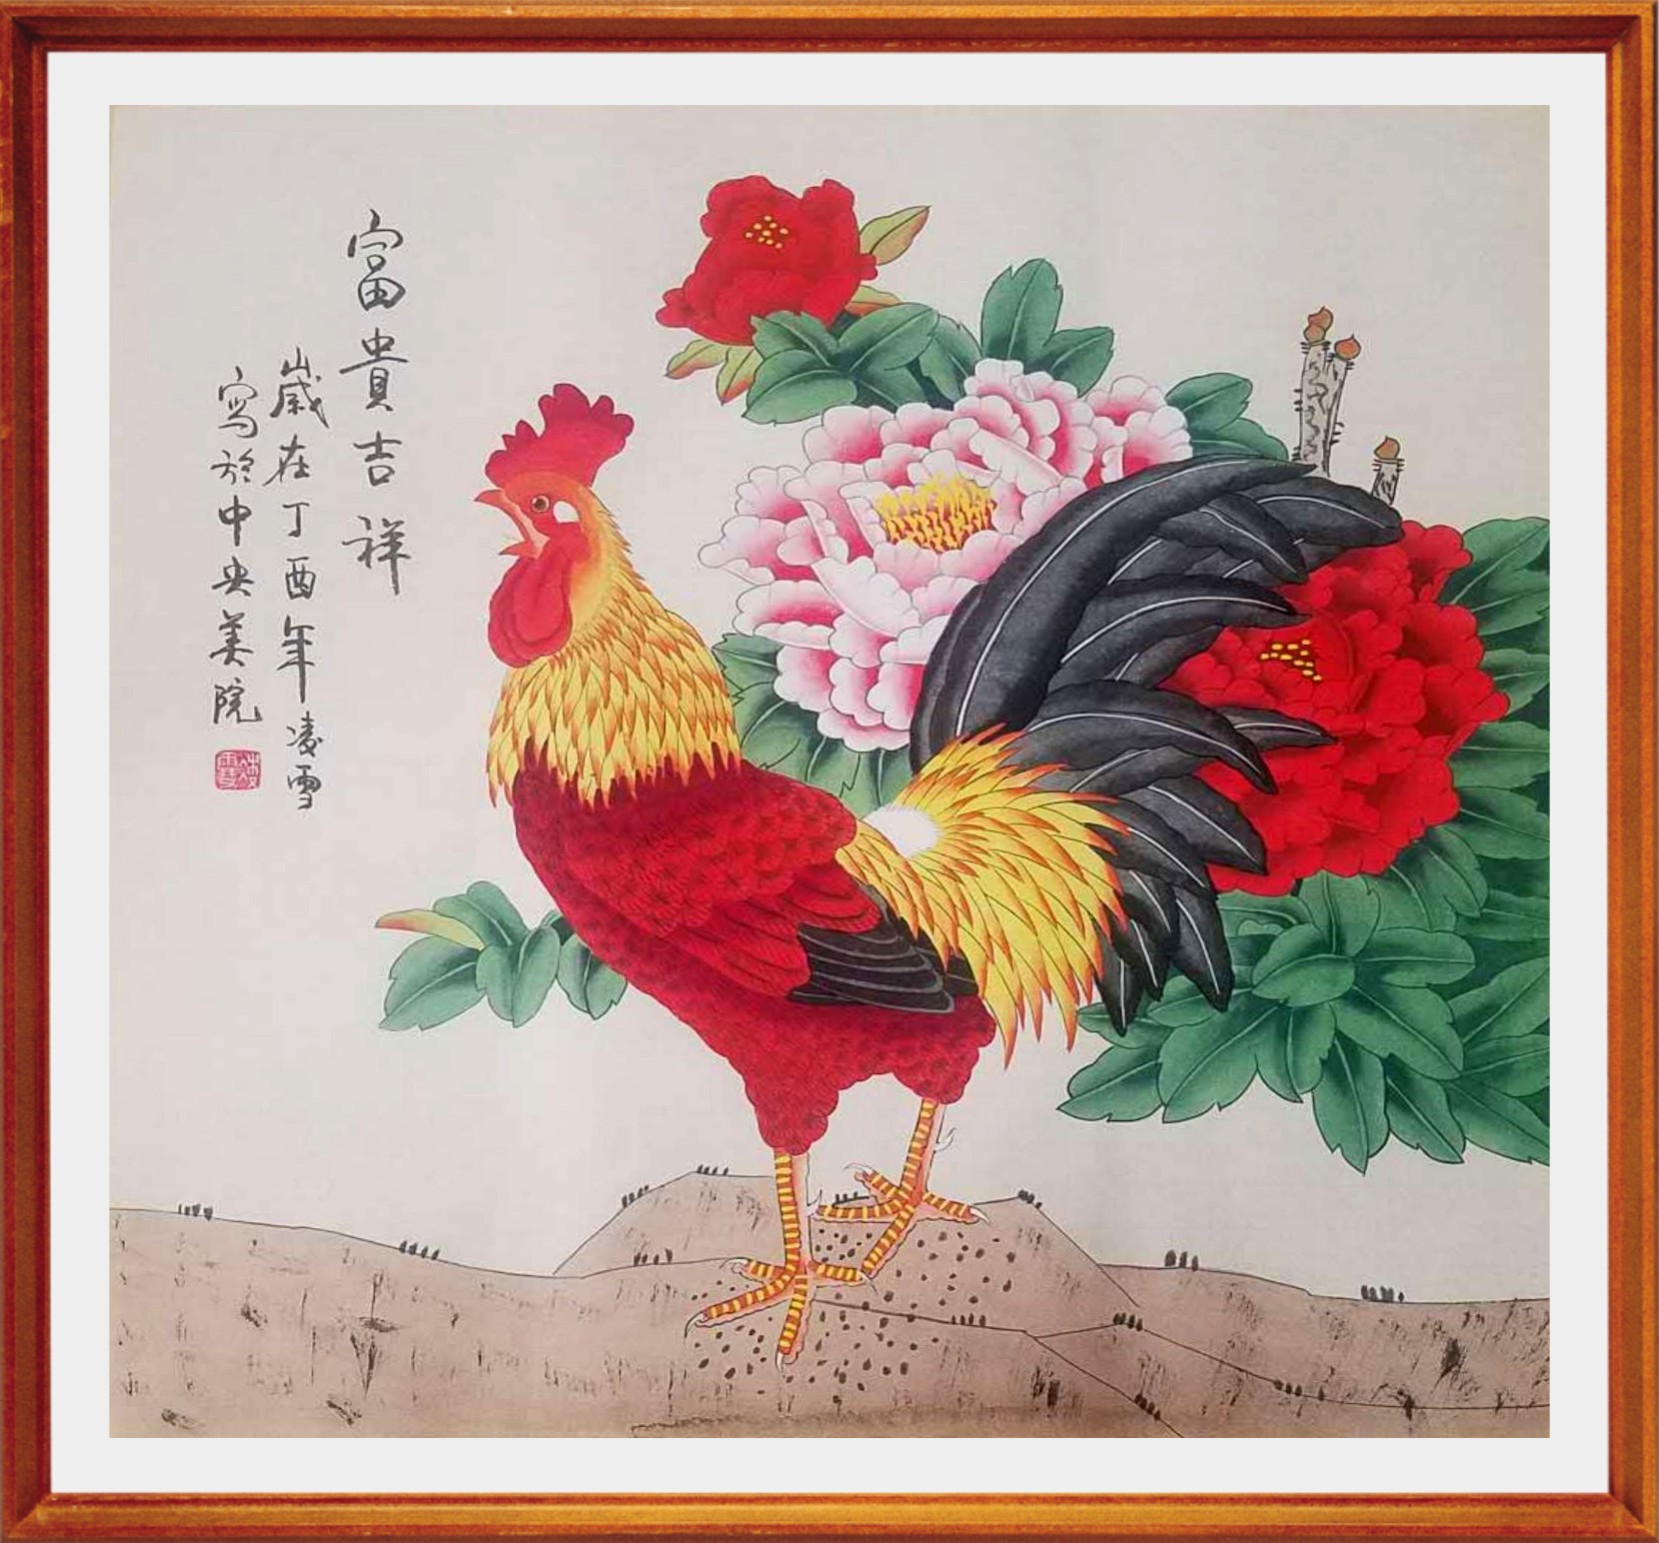 富貴吉祥
歲在丁酉年凌雪
写於中央美院